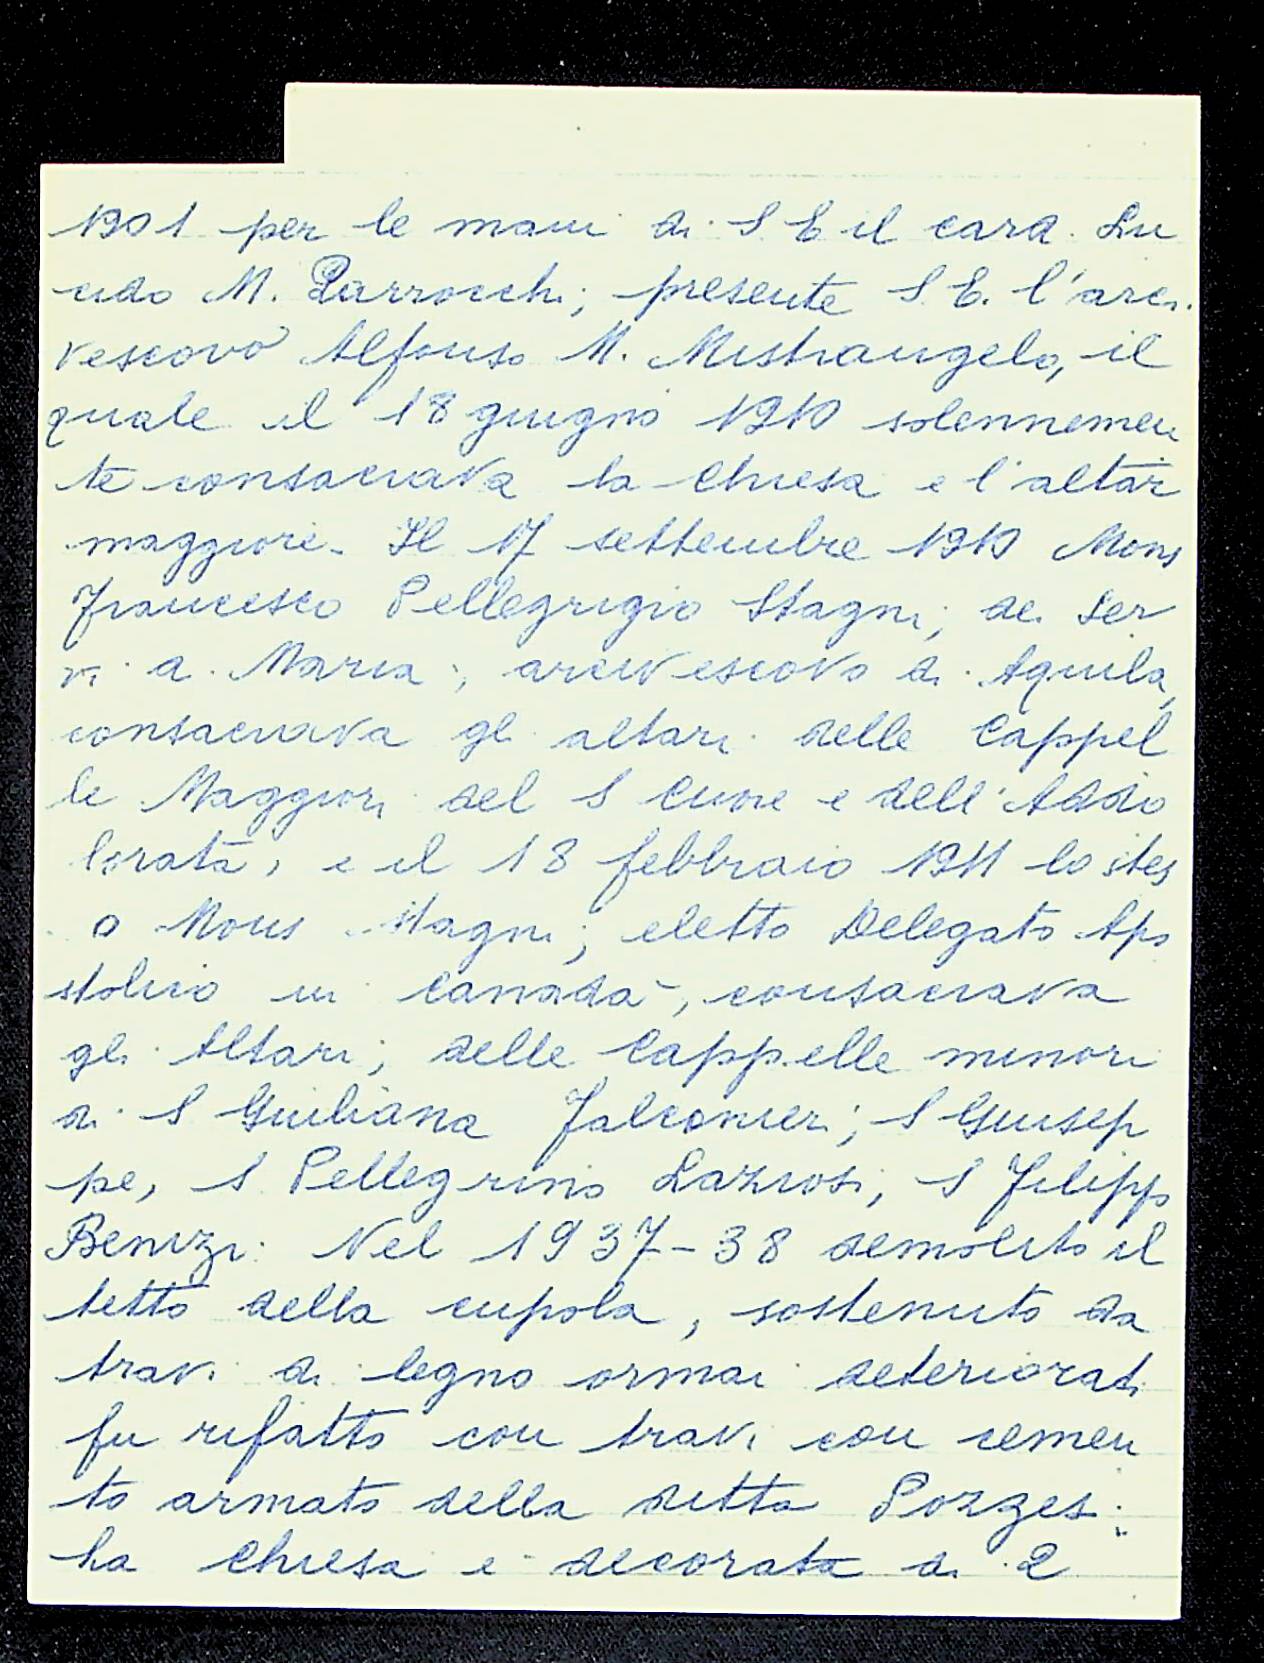 1901 per le mani di S E il card. Lu
cido M. Parrocchi; presente S E. l'arci.
vescovo Alfonso M. Mistrangelo, il
quale il 18 giugno 1910 solennemen
te consacrava la Chiesa e l'altar
maggiore. Il 17 settembre 1910 Mons
Francesco Pellegrigio Stagni; dei Ser
vi di Maria; arcivescovo di Aquila,
consacrava gli altari delle Cappel
le Maggiori del S Cuore e dell'Addo
lorata, e il 18 febbraio 1911 lo stes
o Mons Stagni; eletto Delegato Apo
stolico in Canada, consacrava
gli Altari; delle Cappelle minori
di S Giuliana Falconieri; S Giusep
pe, S Pellegrino Laziosi, S Filippo
Benizi. Nel 1937-38 demolito il
tetto della cupola, sostenuto da
travi di legno ormai deteriorati
fu rifatto con travi con cemen
to armato della ditta Pozzesi:
La Chiesa è decorata di 2